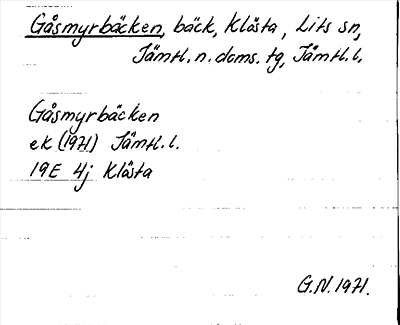 Gåsmyrbäcken, bäck, Klösta, Lits sn,
Jämtl. n. doms. tg, Jämtl. l.
Gåsmyrbäcken
ek (1971) Jämtl. l.
19E 4j Klösta
G.N. 1971.